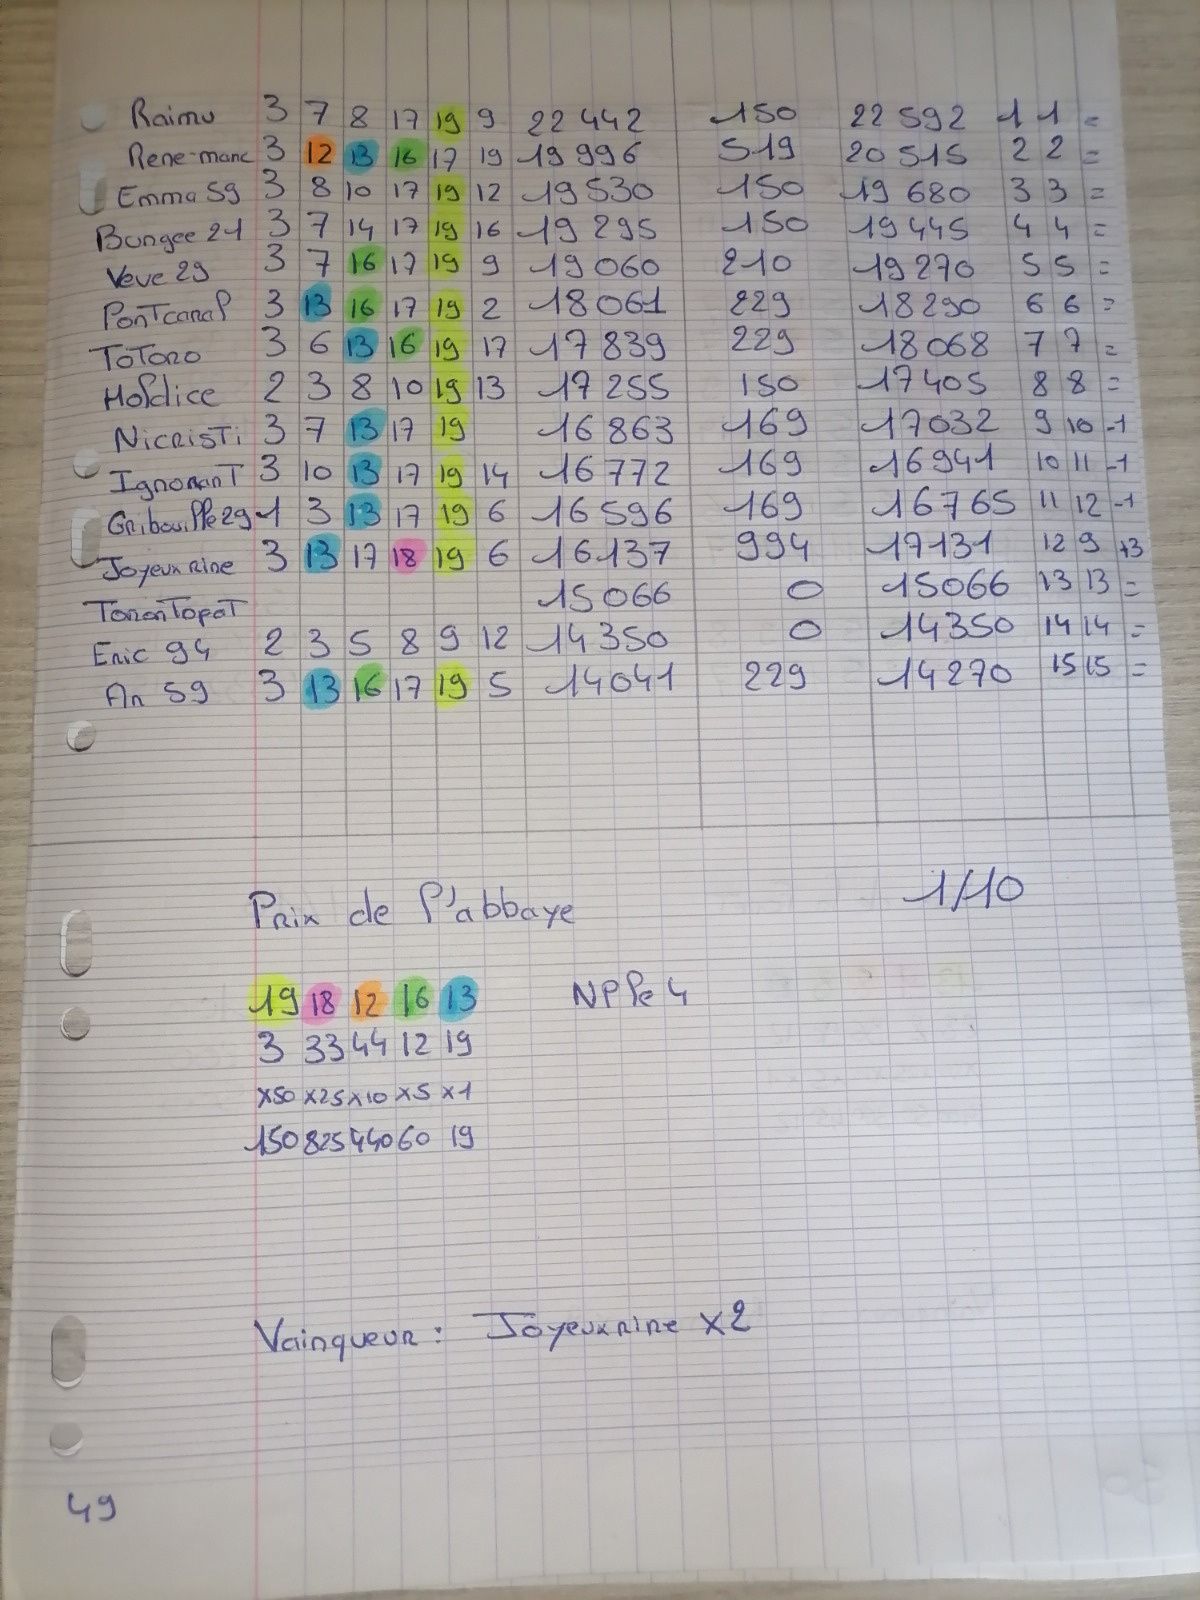 Raimu 3 7 8 17 19 9 22 442 150 22 592 1 1 =
Rene-marc 3 12 13 16 17 19 19 996 519 20 515 2 2 =
Emma 59 3 8 10 17 19 12 19 530 150 19 680 3 3 =
Bungee 21 3 7 14 17 19 16 19 295 150 19 445 4 4 =
Veve 29 3 7 16 17 19 9 19 060 210 19 270 5 5 =
Pontcanal 3 13 16 17 19 2 18 061 229 18 290 6 6 =
Totoro 3 6 13 16 19 17 17 839 229 18 068 7 7 =
Holdice 2 3 8 10 19 13 17 255 150 17 405 8 8 =
Nicristi 3 7 13 17 19 16 863 169 17 032 9 10 -1
Ignorant 3 10 13 17 19 14 16 772 169 16 941 10 11 -1
Gribouille29 1 3 13 17 19 6 16 596 169 16 765 11 12 -1
Joyeuxrire 3 13 17 18 19 6 16 137 994 17131 12 9 +3
Torontopot 15 066 0 15 066 13 13 =
Eric 94 2 3 5 8 9 12 14 350 0 14 350 14 14 =
An 59 3 13 16 17 19 5 14 041 229 14 270 15 15 =
Prix de l'abbaye 1/10
19 18 12 16 13 NP le 4
3 33 44 12 19
x50 x25 x10 x5 x1
150 825 440 60 19
Vainqueur : Joyeuxrire x2
49